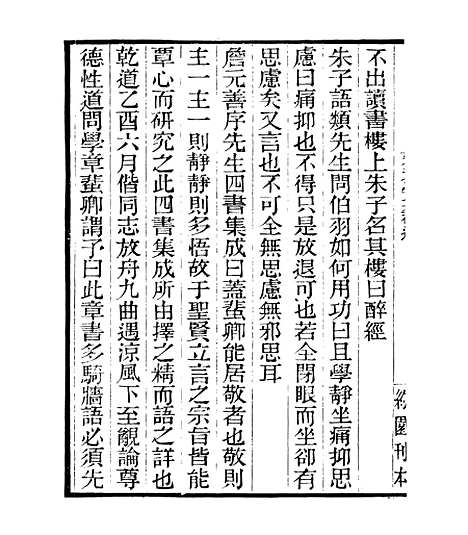 不出讀書樓上朱子名其樓曰醉經
朱子語類先生問伯羽如何用功曰且學靜坐痛抑思
慮曰痛抑也不得只是放退可也若全閉眼而坐卻有
思慮矣又言也不可全無思慮無邪思耳
詹元善序先生四書集成曰蓋蜚卿能居敬者也敬則
主一主一則靜靜則多悟故于聖賢立言之宗旨皆能
覃心而研究之此四書集成所由擇之精而語之詳也
乾道乙酉六月偕同志放舟九曲遇涼風下至觬論尊
德性道問學章蜚卿謂予曰此章書多騎牆語必須先
刊本